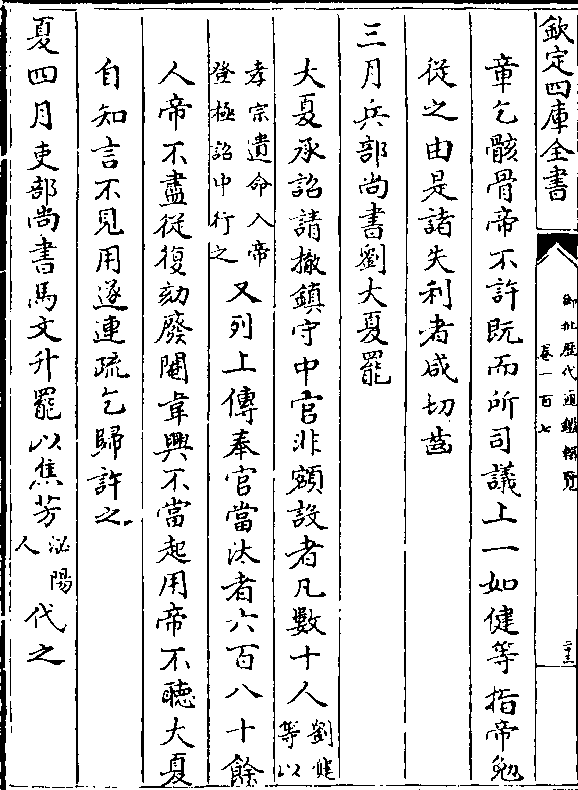 欽定四庫全書
御批歷代通鑑輯覽
卷一百七
二十三
章乞骸骨帝不許既而所司議上一如健等指帝勉
從之由是諸失利者咸切齒
三月兵部尚書劉大夏罷
大夏承詔請撤鎮守中官非額設者凡數十人劉健等以
孝宗遺命入帝登極詔中行之又列上傳奉官當汰者六百八十餘
人帝不盡從復劾廢閹韋興不當起用帝不聽大夏
自知言不見用遂連疏乞歸許之
夏四月吏部尚書馬文升罷以焦芳泌陽人代之